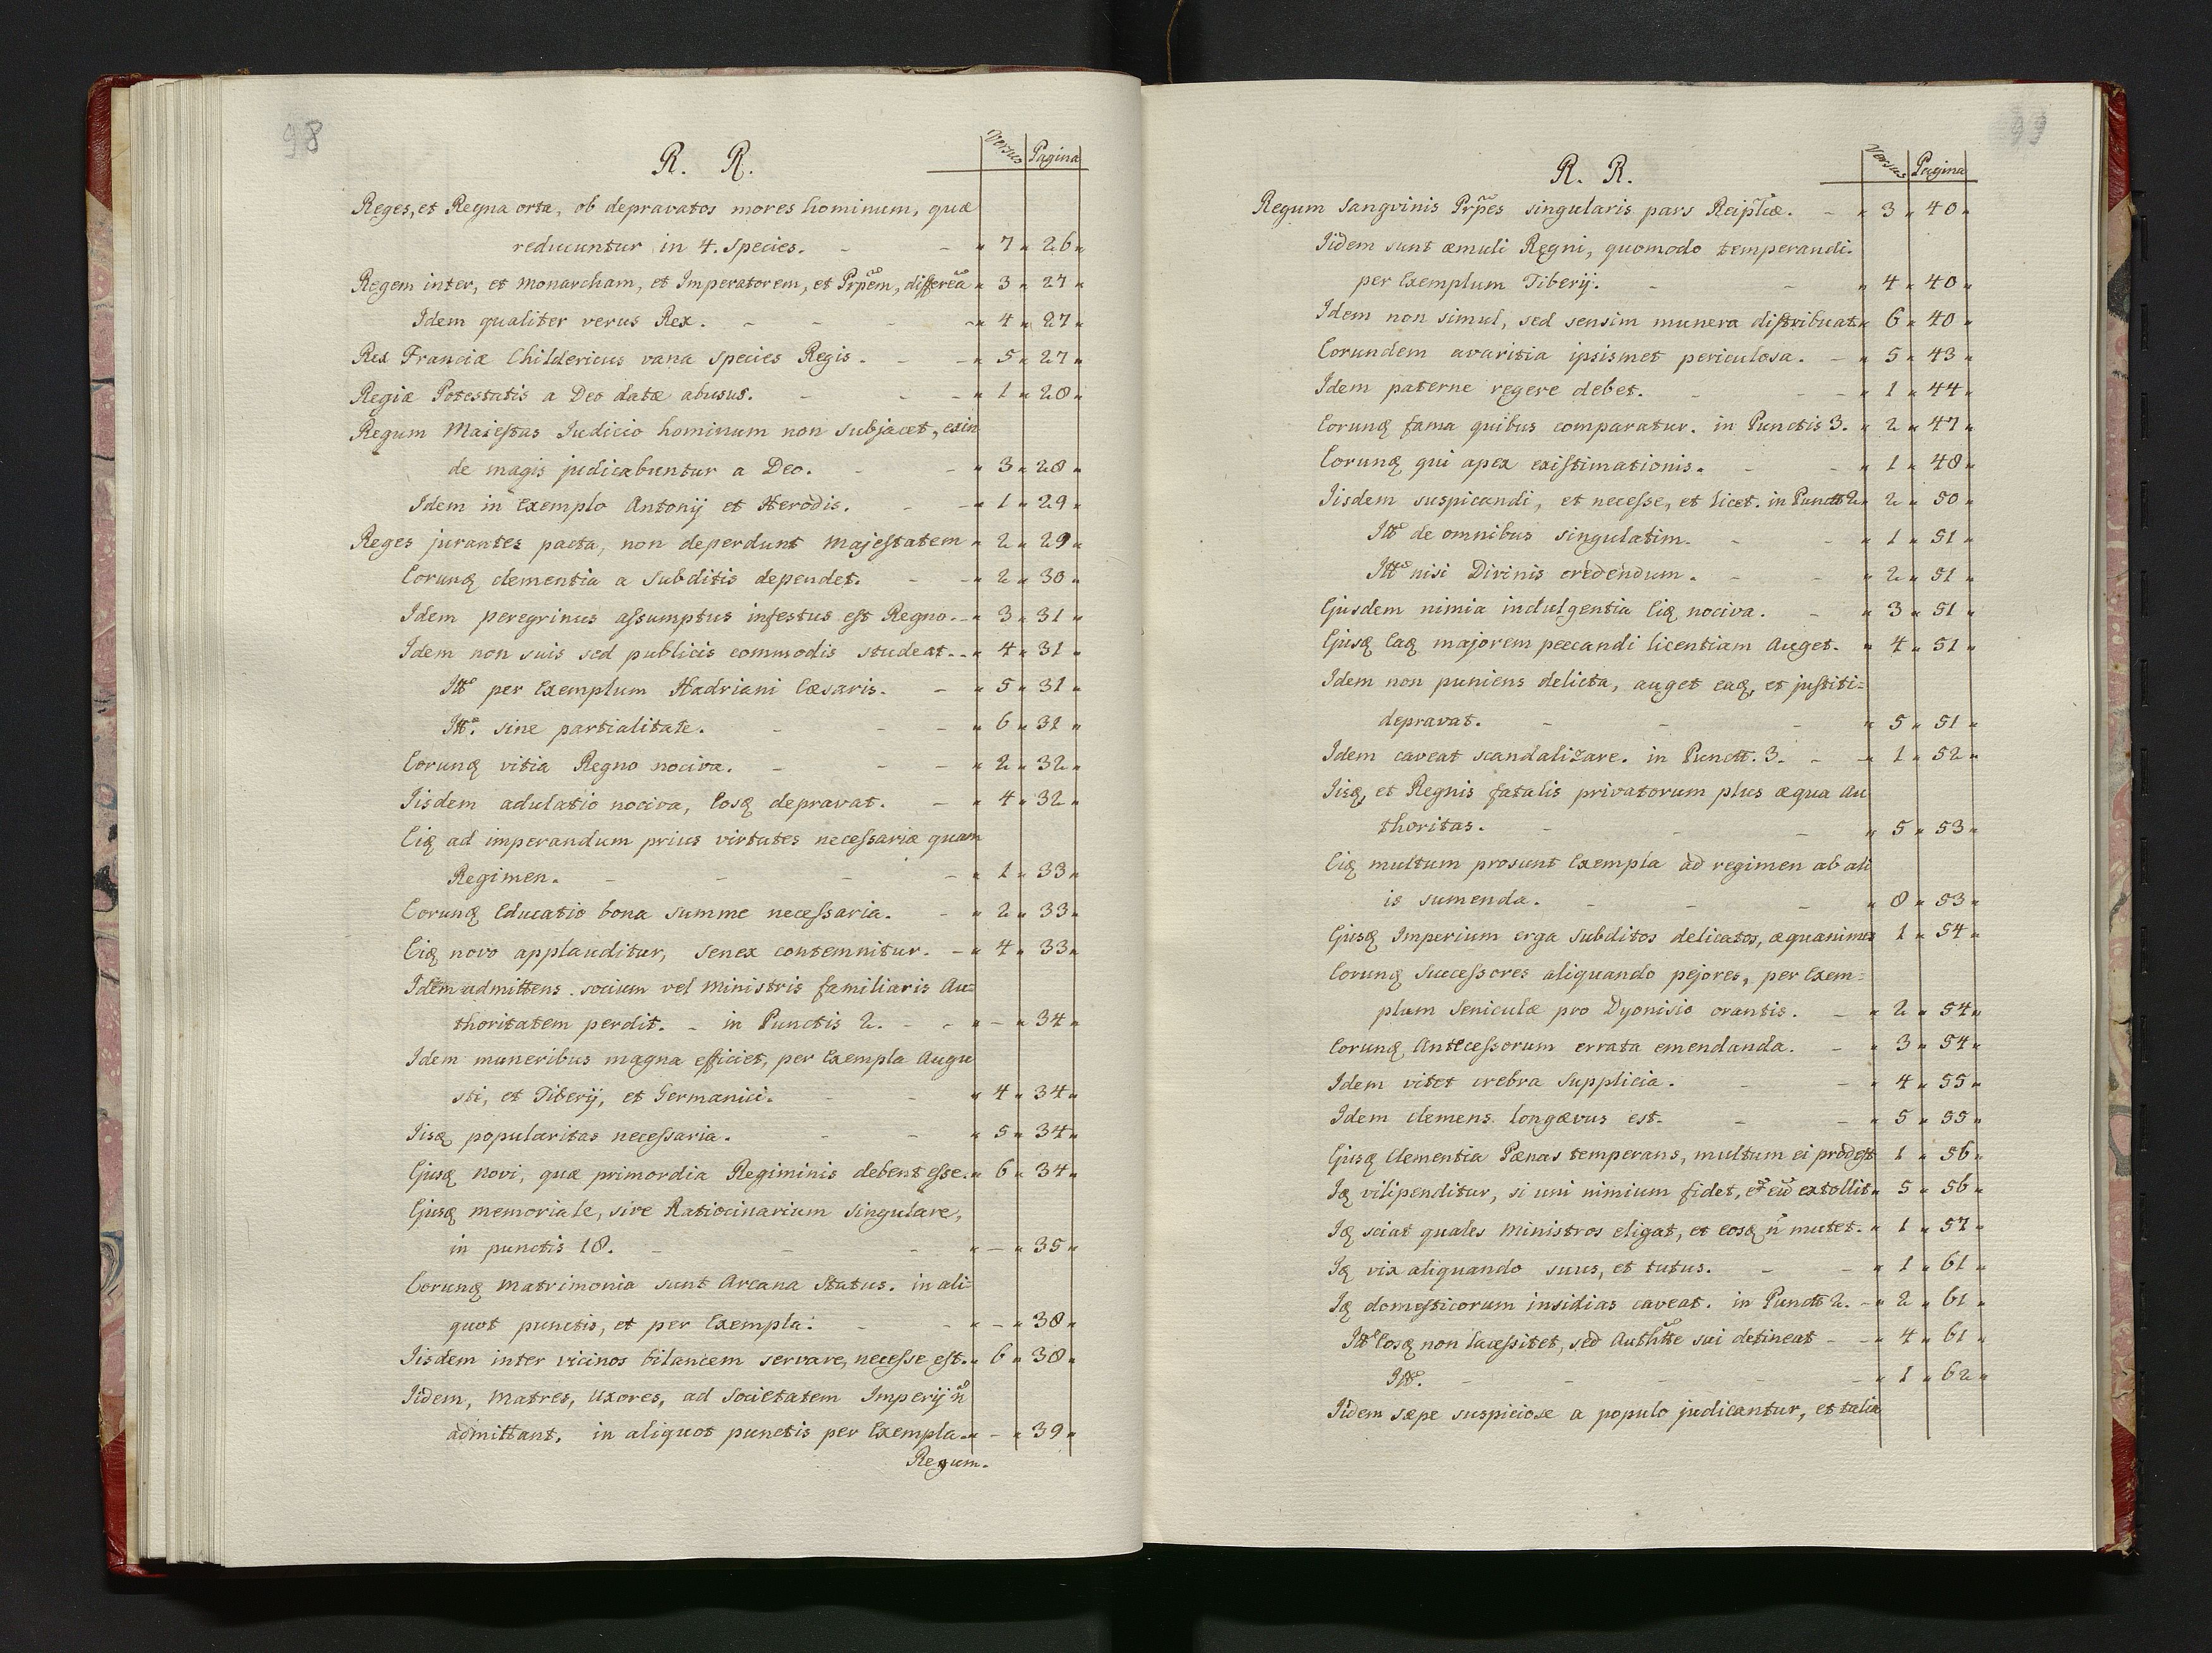 98
R. R.
Versus Pagina
Reges, et Regna orta, ob depravatos mores hominum, quæ
reducuntur in 4. Species. - - " 7 " 26 "
Regem inter, et Monarcham, et Imperatorem, et Prp̃em, differẽa " 3 " 27 "
Idem qualiter verus Rex. - - - - " 4 " 27 "
Rex Franciæ Childericus vana Species Regis. - - " 5 " 27 "
Regiæ Potestatis a Deo datæ abusus. - - - " 1 " 28 "
Regum Maiestas Iudicio hominum non subjacet, exin
de magis judicabuntur a Deo. - - " 3 " 28 "
Idem in Exemplo Antonij et Herodis. - - " 1 " 29 "
Reges jurantes pacta, non deperdunt Majestatem " 2 " 29 "
Eorunq clementia a Subditis dependet. - - " 2 " 30 "
Idem peregrinus assumptus infestus est Regno. - " 3 " 31 "
Idem non suis sed publicis commodis studeat. - " 4 " 31 "
Itt̃o per Exemplum Hadriani Cæsaris. - " 5 " 31 "
Itt̃o. sine partialitate. - - - " 6 " 31 "
Eorunq vitia Regno nociva. - - - " 2 " 32 "
Iisdem adulatio nociva, Eosq depravat. - " 4 " 32 "
Eiq ad imperandum prius virtutes necessariæ quam
Regimen. - - - - " 1 " 33 "
Eorunq Educatio bona summe necessaria. - " 2 " 33 "
Eiq novo applauditur, Senex contemnitur. - " 4 " 33 "
Idem admittens socium vel Ministris familiaris Au=
thoritatem perdit. - in Punctis 2. - - " - " 34 "
Idem muneribus magna efficiet, per Exempla Augu
sti, et Tiberij, et Germanici. - - " 4 " 34 "
Iisq popularitas necessaria. - - " 5 " 34 "
Ejusq novi, quæ primordia Regiminis debent esse. " 6 " 34 "
Ejusq memoriale, sive Ratiocinarium Singulare,
in punctis 18. - - - " - " 35 "
Eorunq Matrimonia sunt Arcana Status. in ali-
quot punctis, et per Exempla. - - " - " 38 "
Iisdem inter vicinos bilancem servare, necesse est. " 6 " 38 "
Iidem, Matres, Uxores, ad Societatem Imperij ñ
admittant, in aliquot punctis per Exempla. " - " 39 "
Regum.
99
R. R.
Versus Pagina
Regum Sangvinis Prp̃es singularis pars Reip̃licæ. - " 3 " 40 "
Iidem sunt æmuli Regni, quomodo temperandi.
per Exemplum Tiberij. - - " 4 " 40 "
Idem non simul, sed sensim munera distribuat " 6 " 40 "
Eorundem avaritia ipsismet periculosa. - " 5 " 43 "
Idem paterne regere debet. - - - " 1 " 44 "
Eorunq fama quibus comparatur. in Punctis 3. " 2 " 47 "
Eorunq qui apex existimationis. - - " 1 " 48 "
Iisdem suspicandi, et necesse, et licet. in Punctt 2 " 2 " 50 "
Itt̃o de omnibus singulatim. - - " 1 " 51 "
Itt̃o nisi Divinis credendum. - - " 2 " 51 "
Ejusdem nimia indulgentia Eiq nociva. - " 3 " 51 "
Ejusq Eaq majorem peccandi licentiam Auget. " 4 " 51 "
Idem non puniens delicta, auget eaq, et justiti=
depravat. - - - " 5 " 51 "
Idem caveat scandalizare. in Punctt. 3. - - " 1 " 52 "
Iisq, et Regnis fatalis privatorum plus æqua Au
thoritas. - - - " 5 " 53 "
Eiq multum prosunt Exempla ad regimen ab ali
is sumenda. - - - " 8 " 53 "
Ejusq Imperium erga Subditos delicatos, æquanimes 1 " 54 "
Eorunq Successores aliquando pejores, per Exem=
plum Seniculæ pro Dyonisio orantis. - " 2 " 54 "
Eorunq Antecessorum errata emendanda. - " 3 " 54 "
Idem vitet crebra Supplicia. - - " 4 " 55 "
Idem clemens longævus est. - - " 5 " 55 "
Ejusq Clementia Pænas temperans, multum ei prodest 1 " 56 "
Iq vilipenditur, si uni nimium fidet, et̃ eũ extollit " 5 " 56 "
Iq sciat quales Ministros eligat, et Eosq ñ mutet. " 1 " 57 "
Iq vix aliquando suus, et tutus. - - " 1 " 61 "
Iq domesticorum insidias caveat. in Punctt 2. - " 2 " 61 "
Itt̃o Eosq non lacessitet, sed Authtt̃e sui detineat - - " 4 " 61 "
Itt̃o. - - - - - " 1 " 62 "
Iidem sæpe suspiciose a populo judicantur, et talia